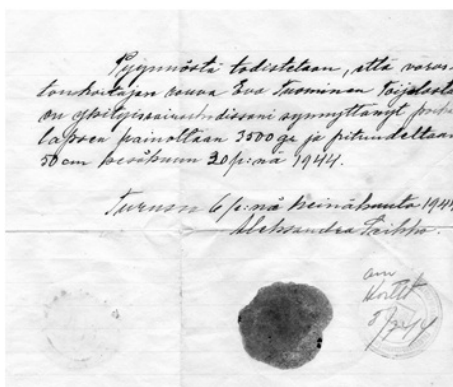 Pyynnöstä todistetaan, että varas-
tonhoitajan rouva Eva Tuominen Toijalasta
on yksityissairashuoneessani synnyttänyt poika
lapsen painoltaan 3500 gr ja pituudeltaan
50 cm kesäkuun 20 p:nä 1944.
Turussa 6 p:nä heinäkuuta 1944
Aleksandra Taikko.